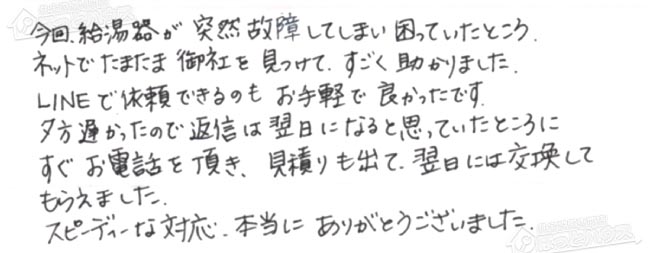 今回、給湯器が突然故障してしまい困っていたところ、
ネットでたまたま御社を見つけて、すごく助かりました。
LINEで依頼できるのもお手軽で良かったです。
夕方遅かったので返信は翌日になると思っていたところに
すぐお電話を頂き、見積りも出て、翌日には交換して
もらえました。
スピーディーな対応、本当にありがとうございました。